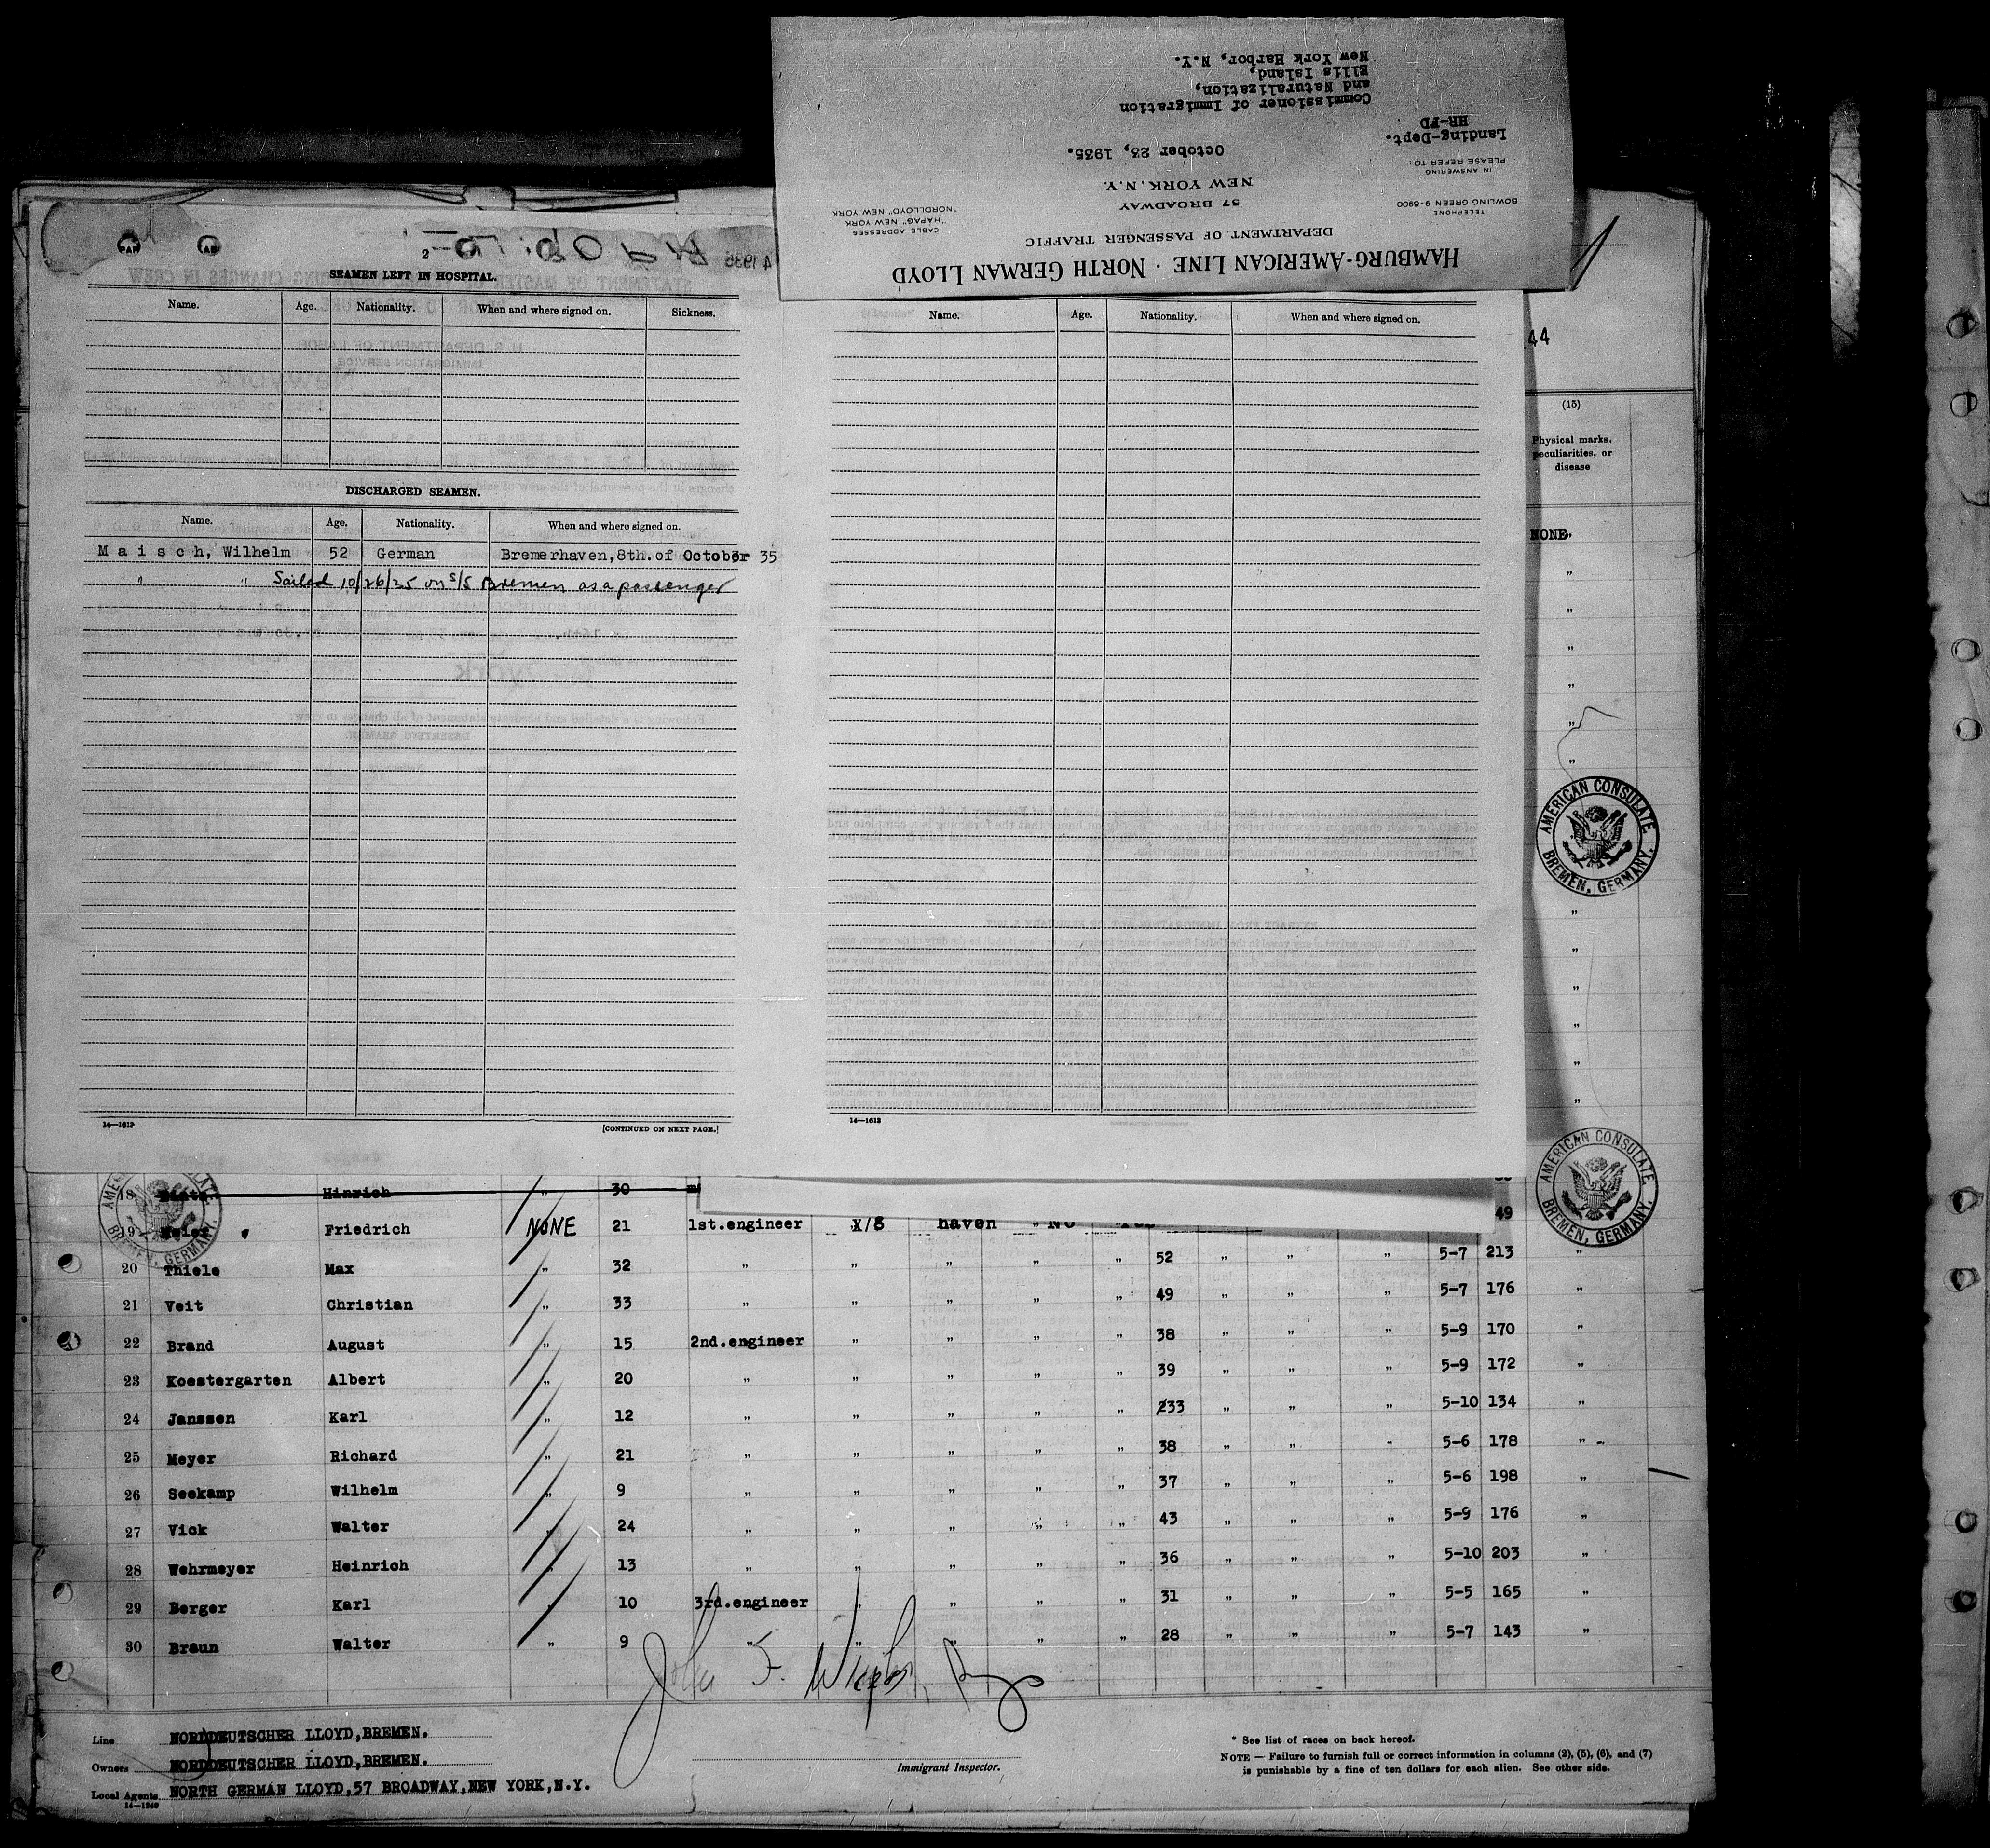 HAMBURG-AMERICAN LINE · NORTH GERMAN LLOYD
DEPARTMENT OF PASSENGER TRAFFIC
57 BROADWAY
NEW YORK, N.Y.
TELEPHONE
BOWLING GREEN 9-6900
CABLE ADDRESSES
"HAPAG" NEW YORK
"NORDLLOYD" NEW YORK
IN ANSWERING
PLEASE REFER TO:
Landing-Dept.
HR-FD
October 23, 1935.
Commissioner of Immigration
and Naturalization,
Ellis Island,
New York Harbor, N.Y.
2
SEAMEN LEFT IN HOSPITAL.
Name. Age. Nationality. When and where signed on. Sickness.
DISCHARGED SEAMEN.
Name. Age. Nationality. When and where signed on.
M a i s c h, Wilhelm 52 German Bremerhaven,8th.of October 35
" " Sailed 10/26/35 on S/S Bremen as a passenger
14—1613
[CONTINUED ON NEXT PAGE.]
Name. Age. Nationality. When and where signed on.
14—1613
44
(15)
Physical marks, peculiarities, or disease
NONE
"
"
"
"
"
"
AMERICAN CONSULATE
BREMEN, GERMANY.
"
"
"
"
"
"
AMERICAN CONSULATE
BREMEN, GERMANY.
18 Hinrich " 30
19 Friedrich NONE 21 1st.engineer X/8 haven " No 49
20 Thiele Max " 32 " " " " " 52 " " " 5-7 213 "
21 Veit Christian " 33 " " " " " 49 " " " 5-7 176 "
22 Brand August " 15 2nd.engineer " " " " 38 " " " 5-9 170 "
23 Koestergarten Albert " 20 " " " " " 39 " " " 5-9 172 "
24 Janssen Karl " 12 " " " " " 233 " " " 5-10 134 "
25 Meyer Richard " 21 " " " " " 38 " " " 5-6 178 "
26 Seekamp Wilhelm " 9 " " " " " 37 " " " 5-6 198 "
27 Vick Walter " 24 " " " " " 43 " " " 5-9 176 "
28 Wehrmeyer Heinrich " 13 " " " " " 36 " " " 5-10 203 "
29 Berger Karl " 10 3rd.engineer " " " " 31 " " " 5-5 165 "
30 Braun Walter " 9 " " " " " 28 " " " 5-7 143 "
Line NORDDEUTSCHER LLOYD,BREMEN.
Owners NORDDEUTSCHER LLOYD,BREMEN.
Local Agents NORTH GERMAN LLOYD,57 BROADWAY,NEW YORK,N.Y.
14—1240
John F.
Immigrant Inspector.
* See list of races on back hereof.
NOTE — Failure to furnish full or correct information in columns (2), (5), (6), and (7)
is punishable by a fine of ten dollars for each alien. See other side.